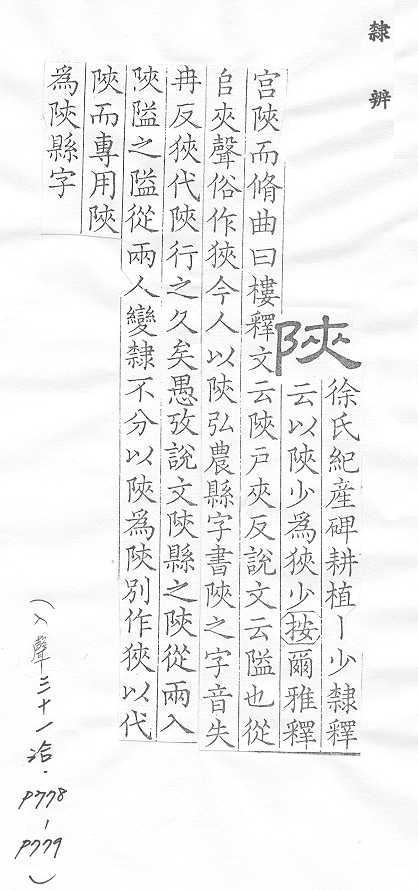 隸辨
陜
徐氏紀産碑耕植丨少隸釋
云以陜少為狹少按爾雅釋
宮陜而脩曲曰樓釋文云陜戸夾反說文云隘也從
𨸏夾聲俗作狹今人以陜弘農縣字書陜之字音失
冉反狹代陜行之久矣愚攷說文陝縣之陝從兩入
陜隘之隘從兩人變隸不分以陜為陝別作狹以代
陜而專用陜
為陝縣字
(入聲三十一洽.P778-P779)